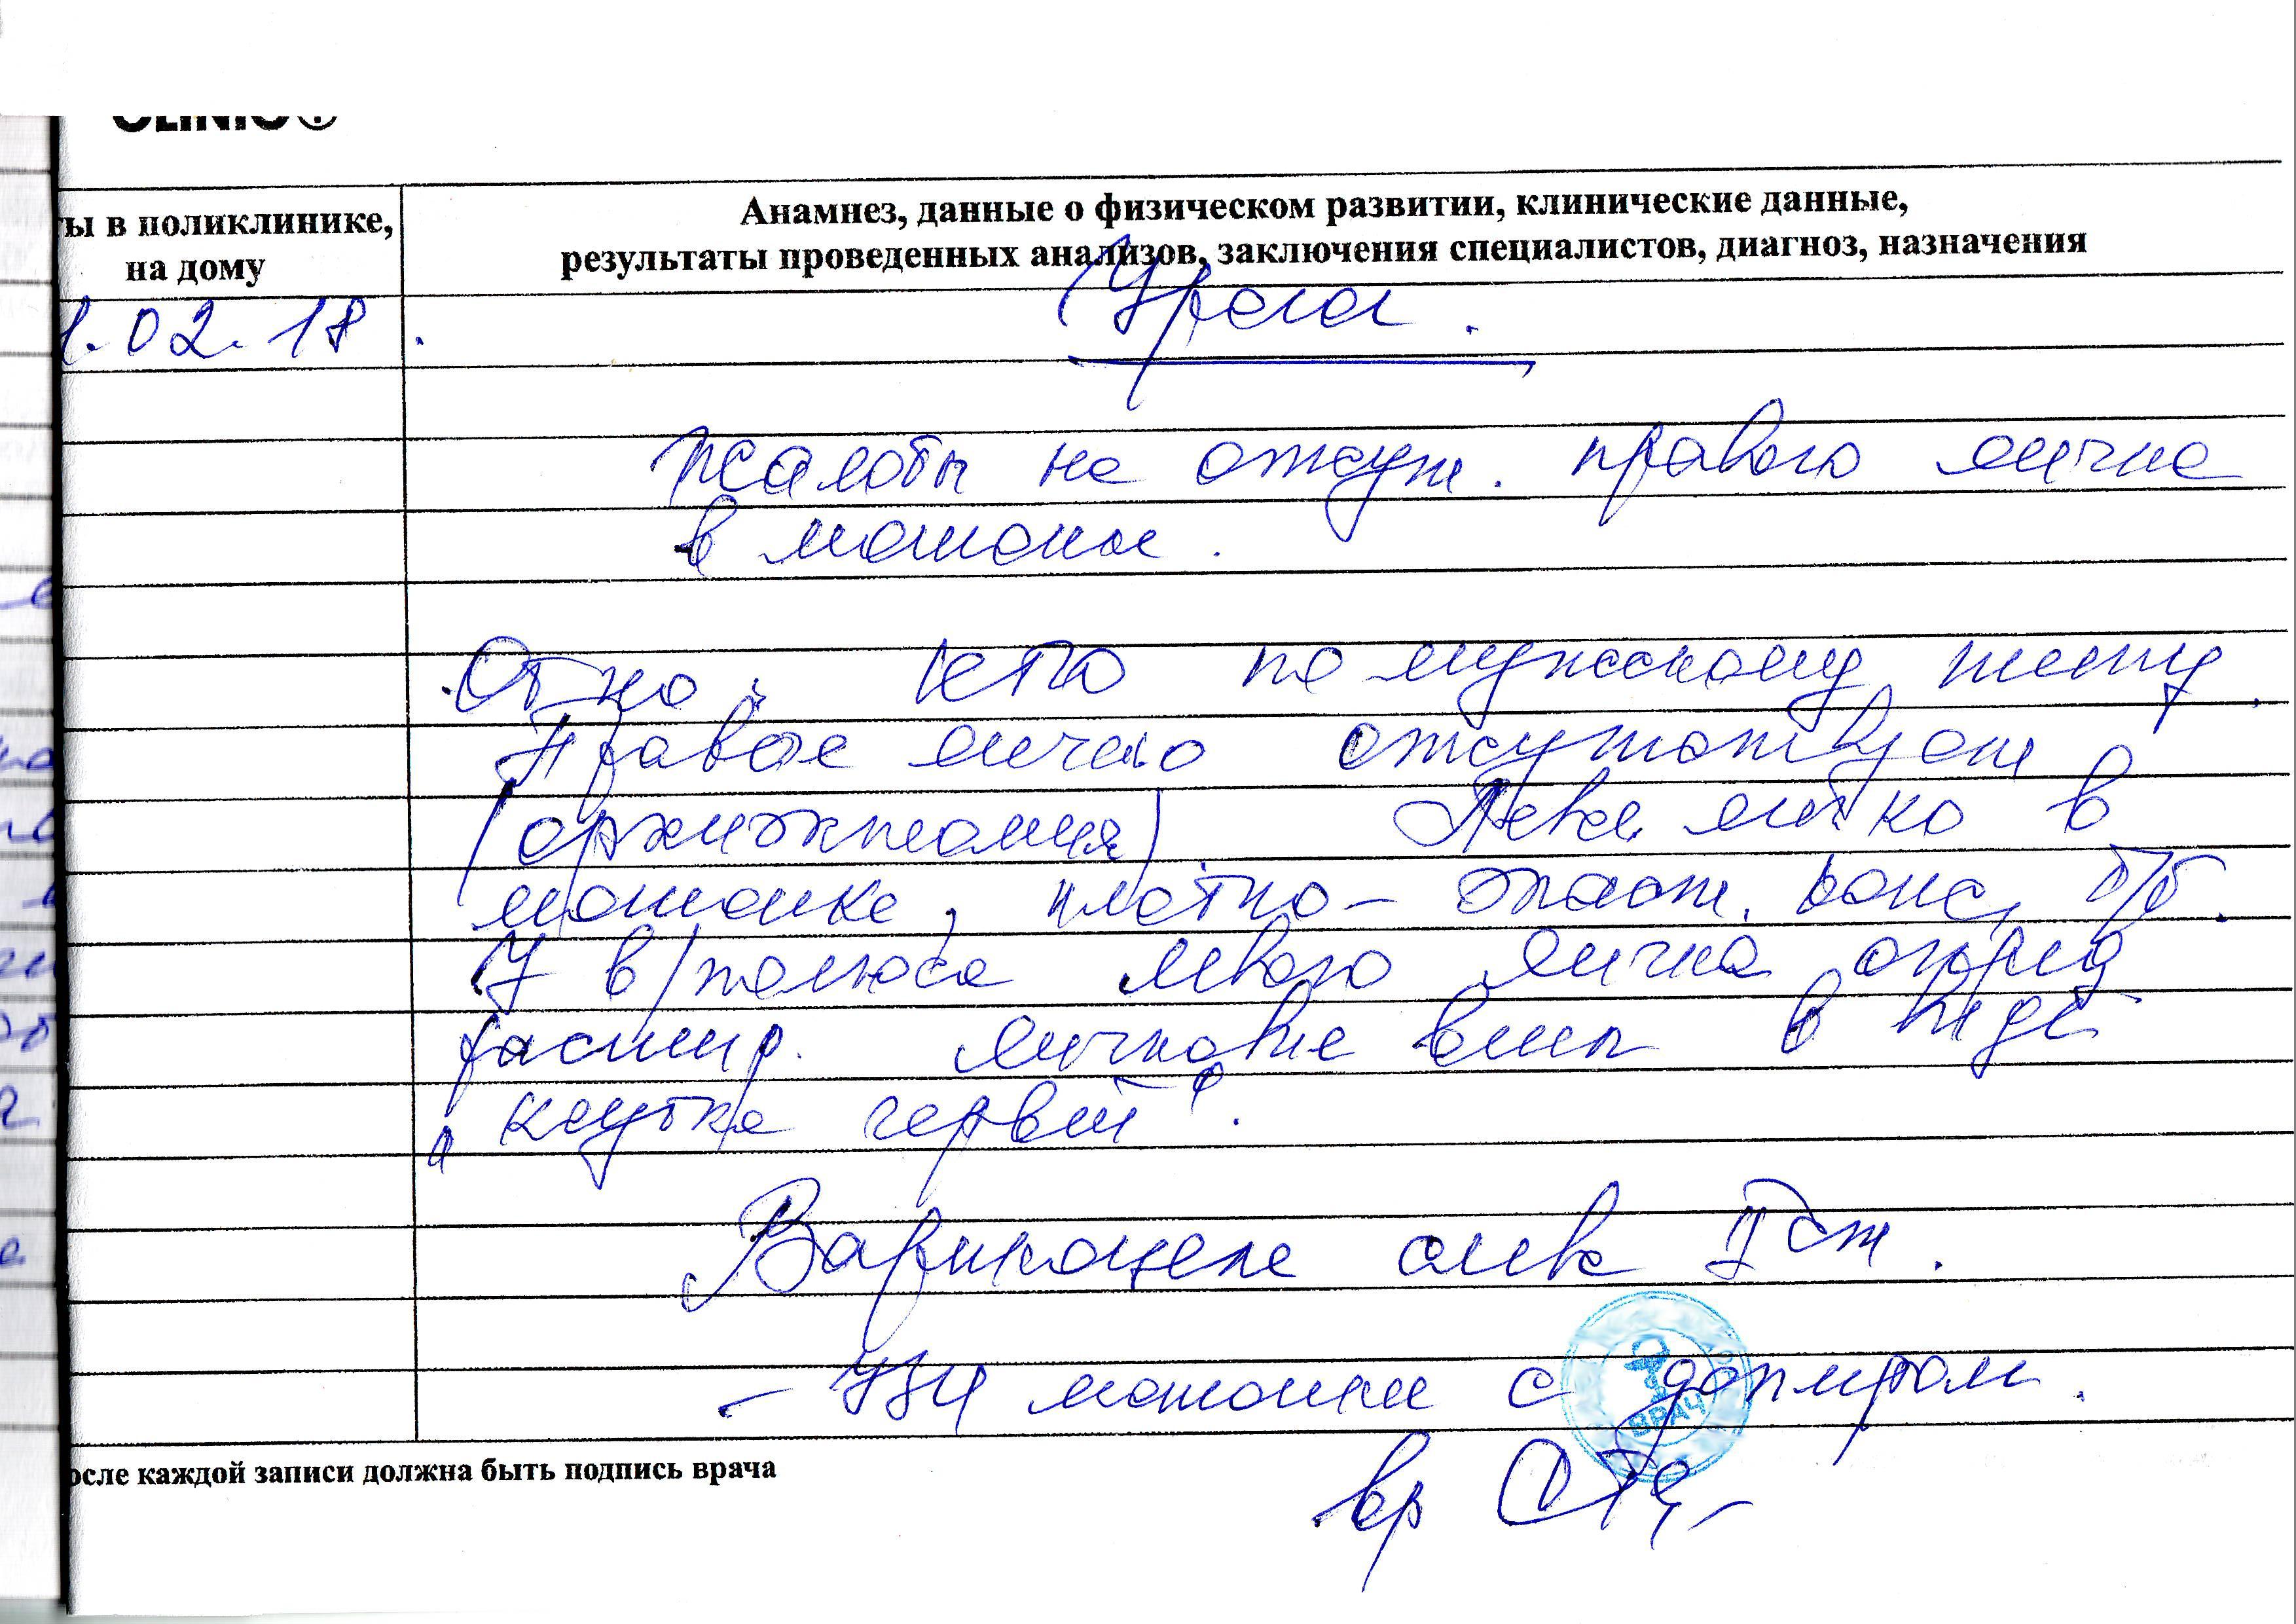 CLINIC
ты в поликлинике,
на дому
Анамнез, данные о физическом развитии, клинические данные,
результаты проведенных анализов, заключения специалистов, диагноз, назначения
1.02.18.
Уролог.
Жалобы на отсутст. правого яичка
в мошонке.
по мужскому типу.
Правое яичко отсутствует
(орхиэктомия) Левое яичко в
мошонке, плотно-эласт. конс, б/б.
У в/полюса левого яичка опред
расшир. яичковые вены в виде
"клубка червей".
Варикоцеле слева II ст.
- УЗИ мошонки с допплером.
ВРАЧ
вр
осле каждой записи должна быть подпись врача